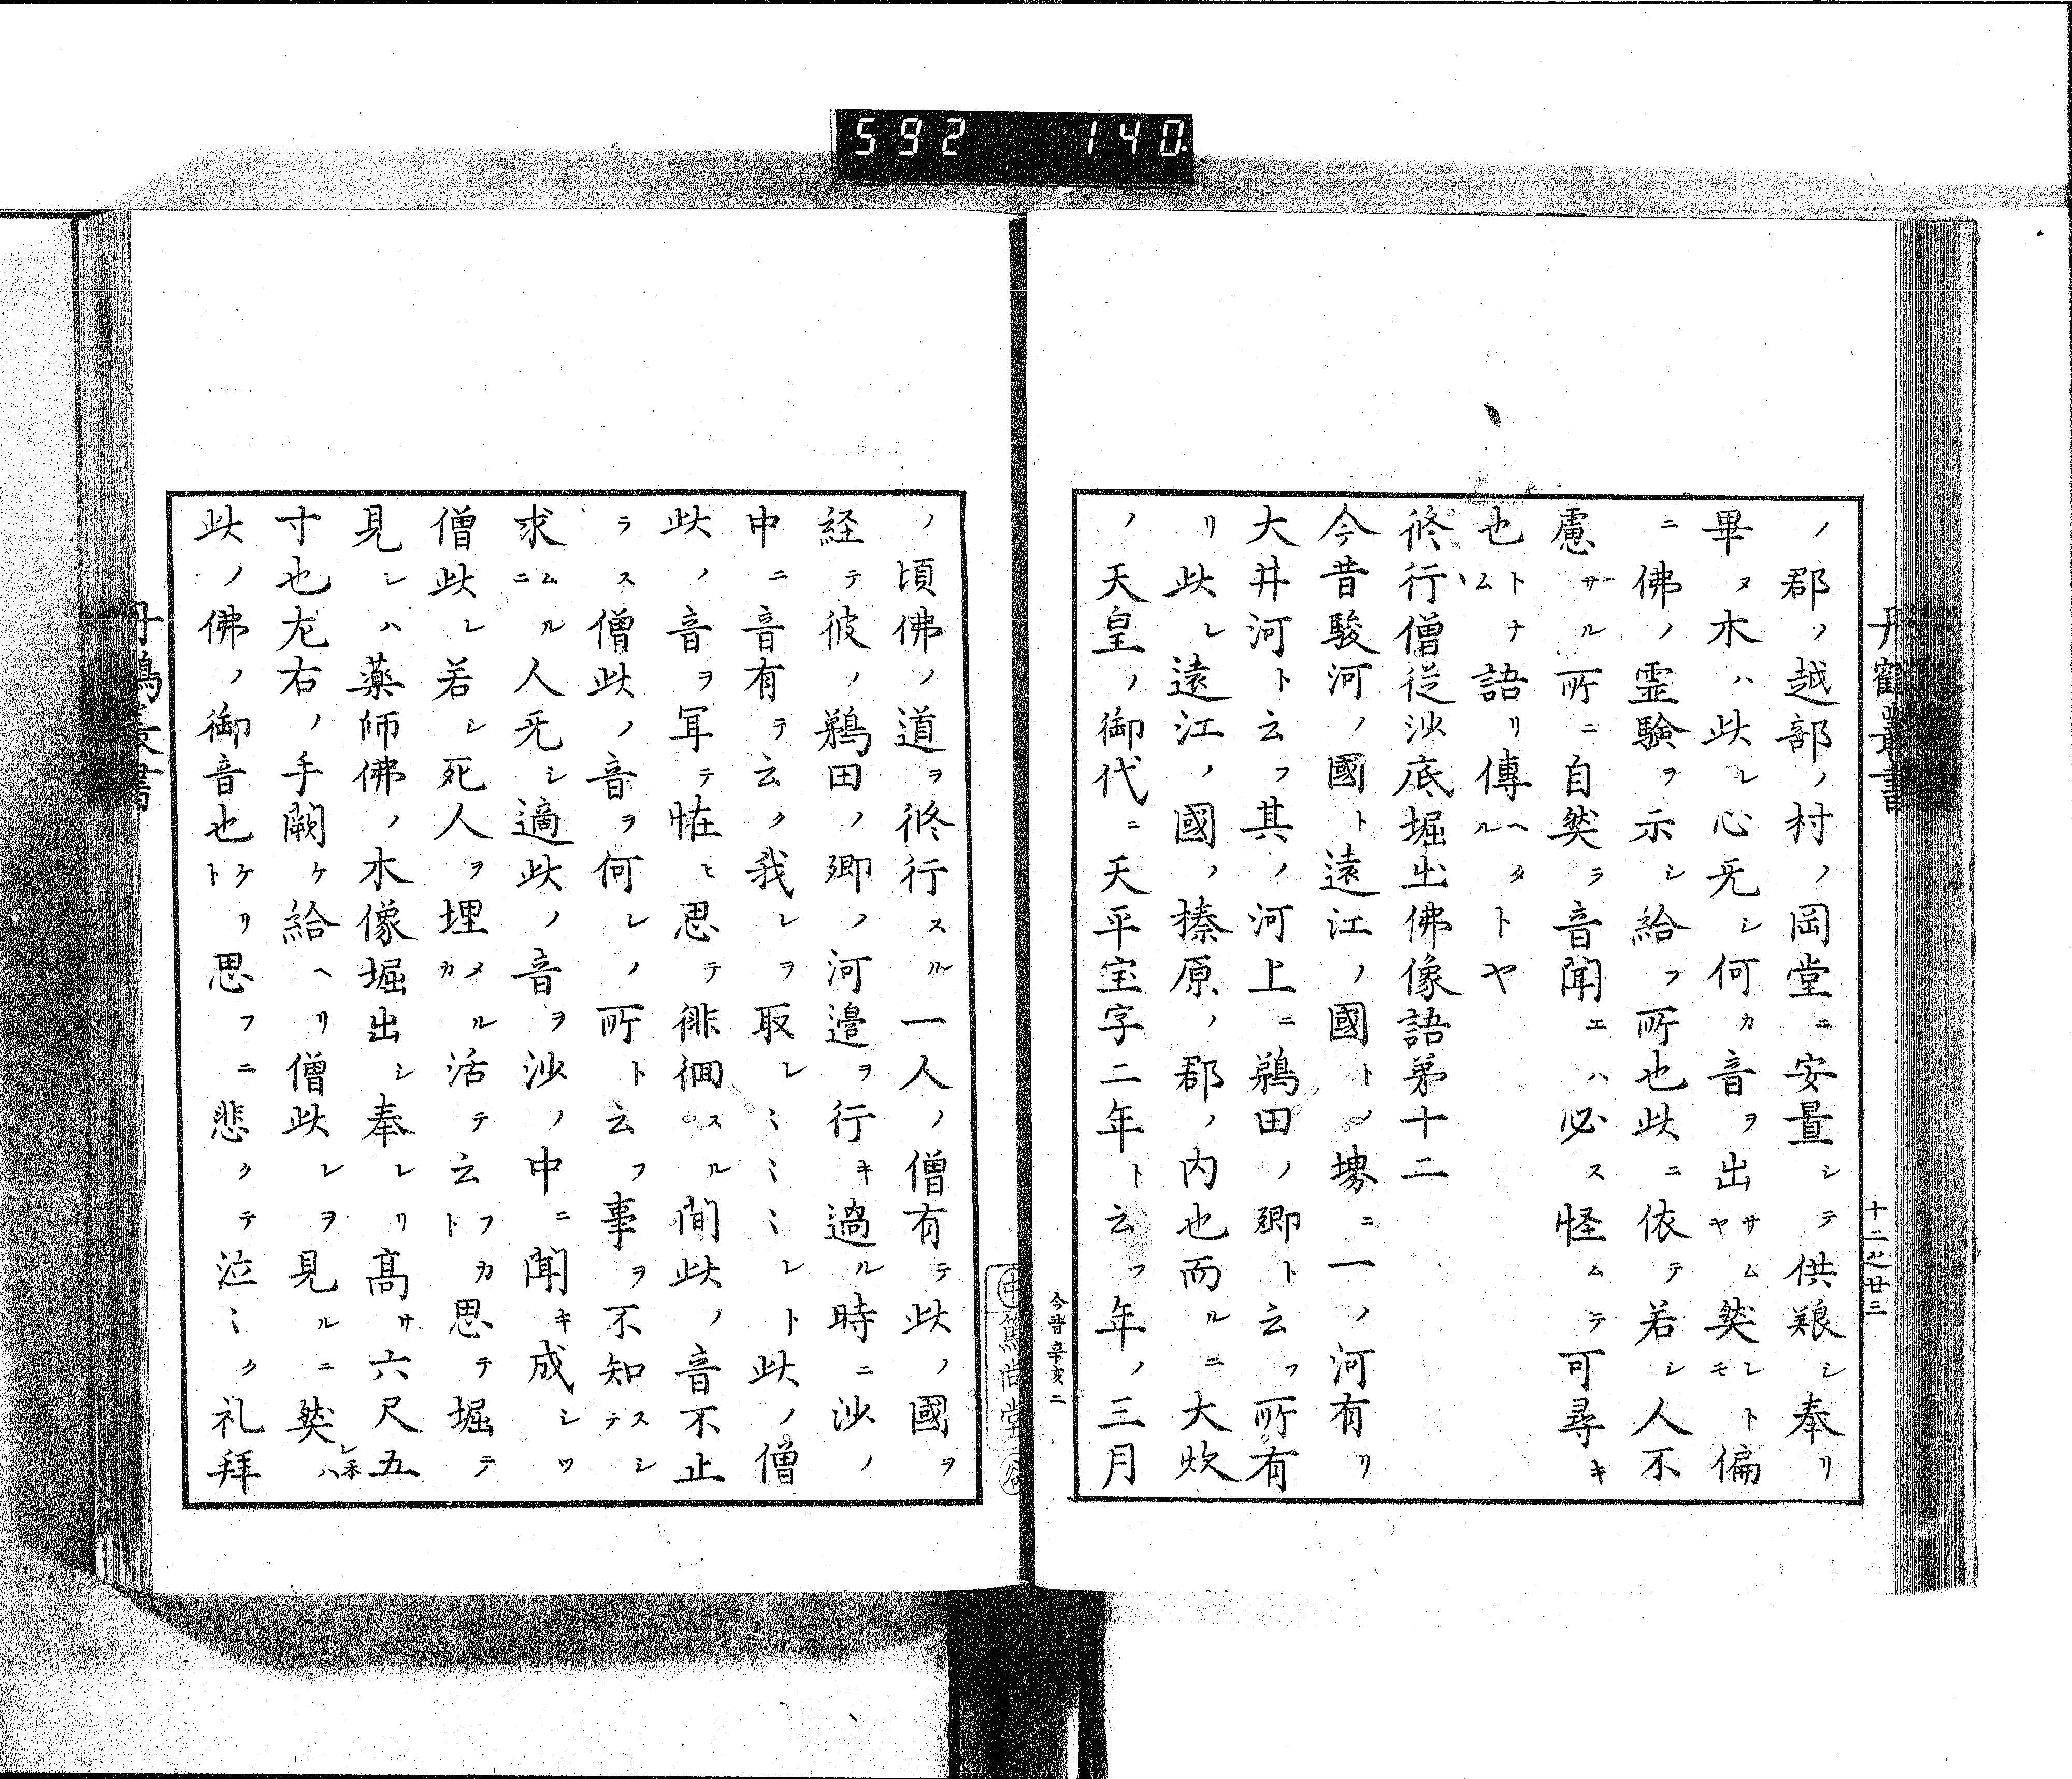 592 140
丹鶴叢書
十二之廿三
ノ郡ノ越部ノ村ノ岡堂ニ安置シテ供粮シ奉リ
畢ヌ木ハ此レ心旡シ何カ音ヲ出サムヤ然レトモ偏
ニ佛ノ霊驗ヲ示シ給フ所也此ニ依テ若シ人不
慮サル所ニ自然ラ音聞エハ必ス怪ムテ可尋キ
也トナム語リ傳ヘタルトヤ
修行僧從沙底堀出佛像語弟十二
今昔駿河ノ國ト遠江ノ國トノ堺ニ一ノ河有リ
大井河ト云フ其ノ河上ニ鵜田ノ郷ト云フ所有
リ此レ遠江ノ國ノ榛原ノ郡ノ内也而ルニ大炊
ノ天皇ノ御代ニ天平宝字二年ト云フ年ノ三月
今昔辛亥二
篤尚堂
ノ頃佛ノ道ヲ修行スル一人ノ僧有テ此ノ國ヲ
経テ彼ノ鵜田ノ郷ノ河邉ヲ行キ過ル時ニ沙ノ
中ニ音有テ云ク我レヲ取レミミミレト此ノ僧
此ノ音ヲ耳テ恠ヒ思テ徘徊スル間此ノ音不止
ラス僧此ノ音ヲ何レノ所ト云フ事ヲ不知スシテ
求ムルニ人旡シ適此ノ音ヲ沙ノ中ニ聞キ成シツ
僧此レ若シ死人ヲ埋メルカ活テ云フカト思テ堀テ
見レハ薬師佛ノ木像堀出シ奉レリ髙サ六尺五
寸也尤右ノ手闕ケ給ヘリ僧此レヲ見ルニ然レハ
此ノ佛ノ御音也ケリト思フニ悲クテ泣ミク礼拜